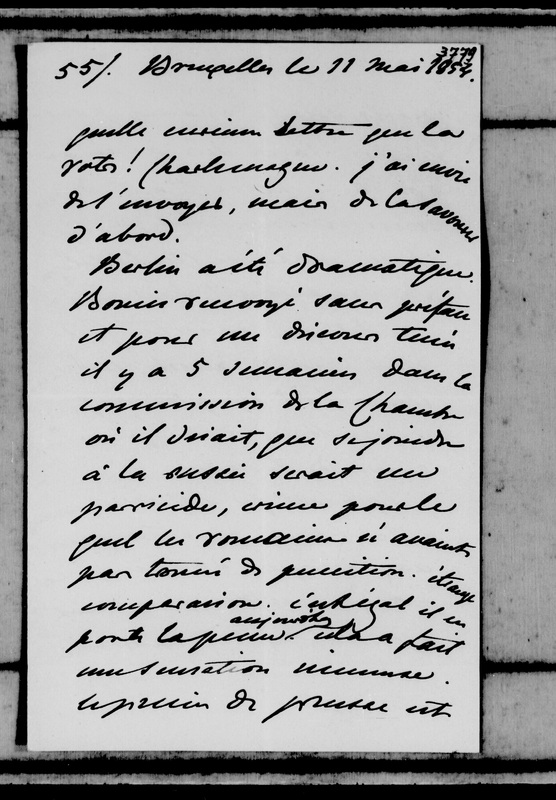 3779
55/. Bruxelles le 11 Mai 1854.
quelle curieuse lettre que la
votre! Charlemagne. j'ai envie
de l'envoyer, mais de la savourer
d'abord.
Berlin a été dramatique.
Bonin renvoyé sans préface
et pour un discours tenu
il y a 5 semaines dans la
commission de la Chambre
où il disait, que se joindre
à la russie serait un
parricide, crime pour le
quel les romains n'avaient
pas trouvé de punition. étrange
comparaison. il en
porte la peine aujourd'hui a fait
une sensation immense.
le prince de prusse est